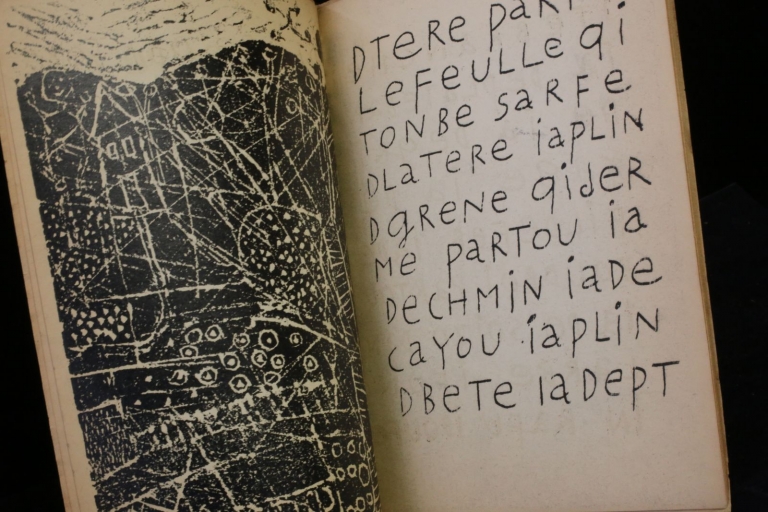 DTERE PART
LEFEULLE qi
TONBE SARFE
DLATERE iAPLiN
DGRENE qiJER
ME PARTOU iA
DECHMiN iADE
CAYOU iAPLiN
DBETE IADEPT